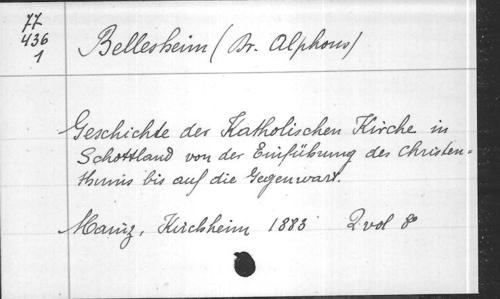 77
436
1
Bellesheim (Dr. Alphons)
Geschichte der Katholischen Kirche in
Schottland von der Einführung des Christen=
thums bis auf die Gegenwart.
Mainz, Kirchheim 1883 2 vol 8º